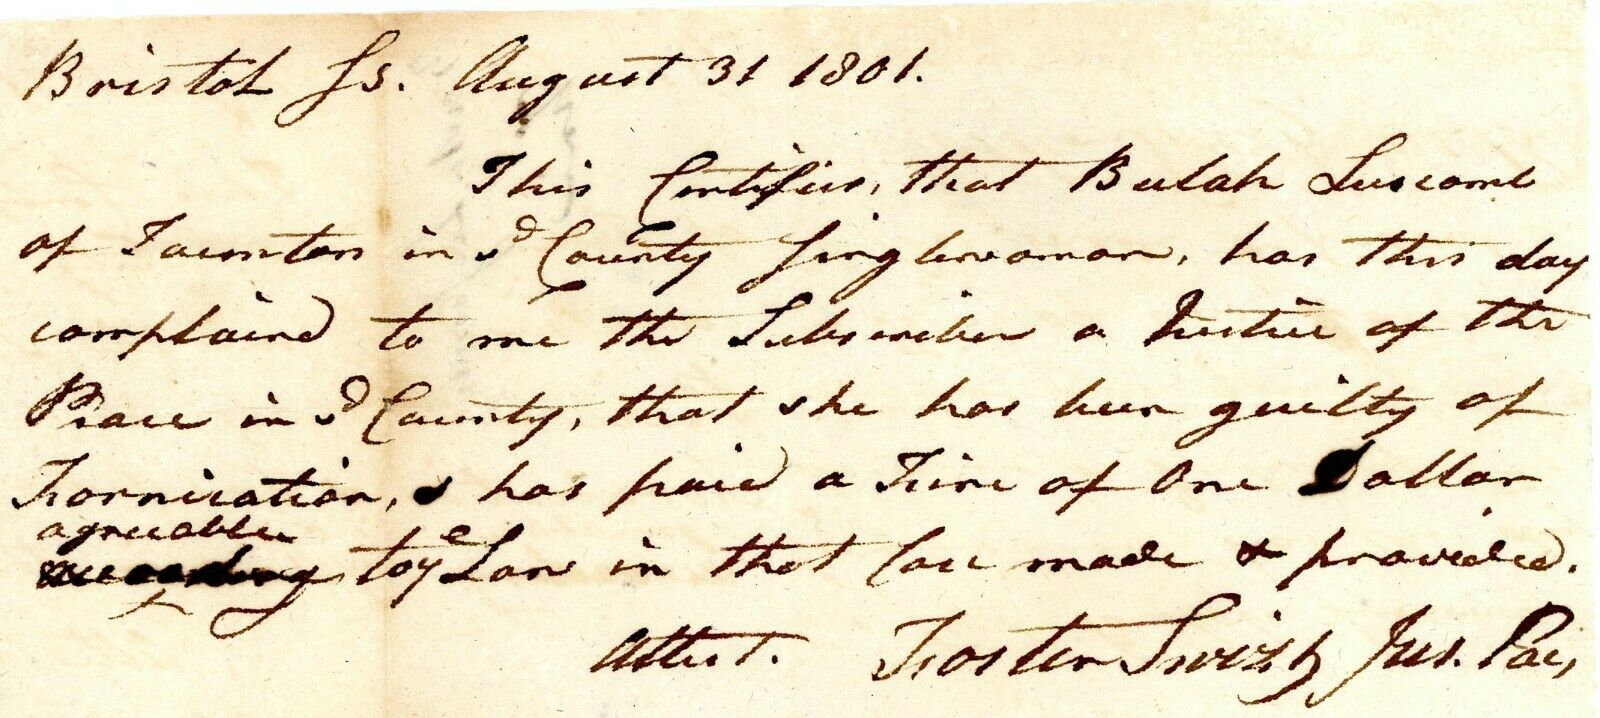 Bristol ss. August 31 1801.
This Certifies, that Bulah Luscomb
of Taunton in sd County Singlewoman, has this day
complaind to me the Subscriber a Justice of the
Peace in sd County, that she has been guilty of
Fornication, & has paid a Fine of One Dollar
agreeable
according to ye Law in that Case made & provided.
Attest. Foster Swift Jus. Pais